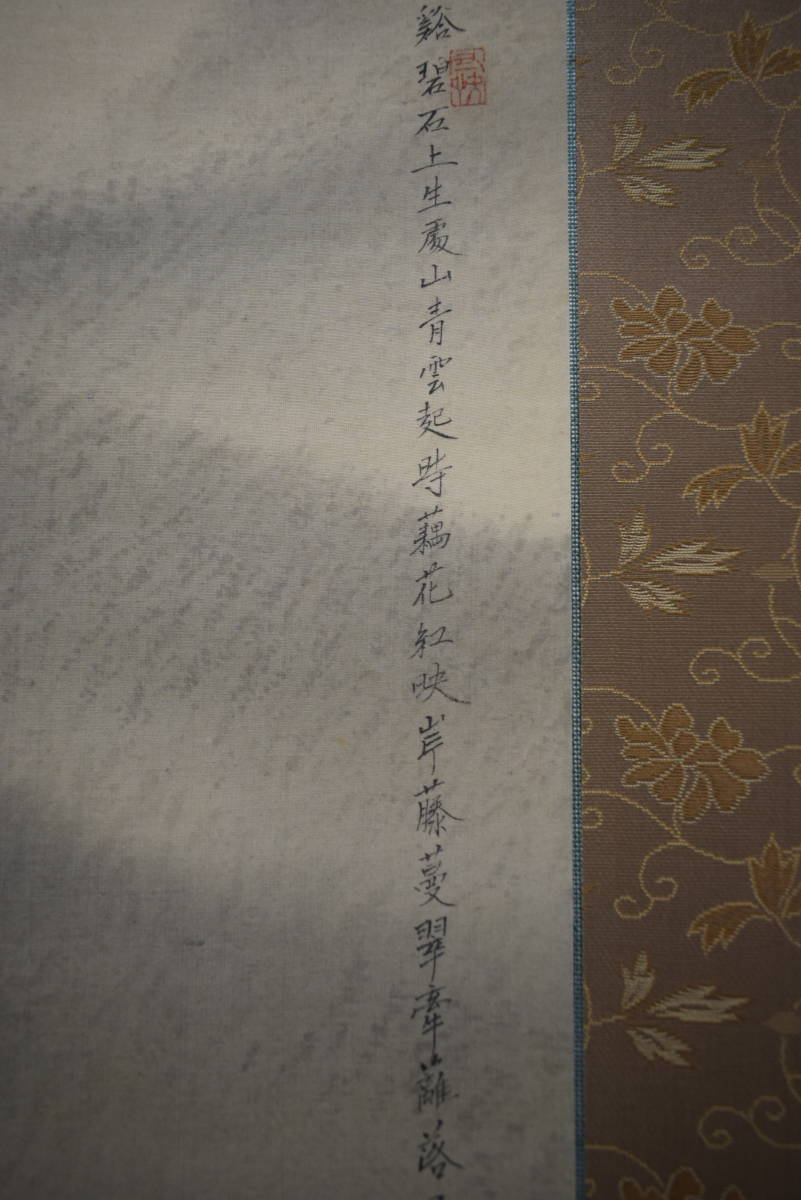 谿碧石上生處山青雲起時藕花紅映岸藤蔓翠牽籬落